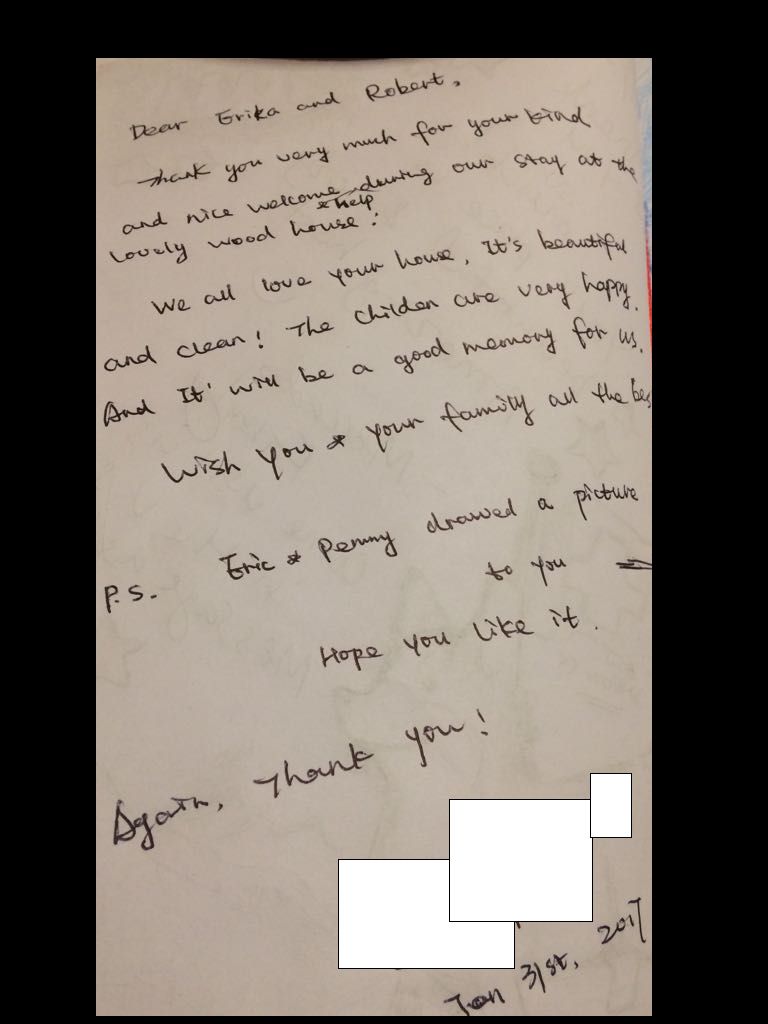 Dear Erika and Robert,
Thank you very much for your kind
and nice welcome & help during our stay at the
lovely wood house!
We all love your house, It's beautiful
and clean! The childen are very happy.
And It' will be a good memory for us.
Wish you & your family all the bes
P.S. Eric & Penny drawed a picture
to you ⇒
Hope you like it.
Again, Thank you!
Jan 31st, 2017